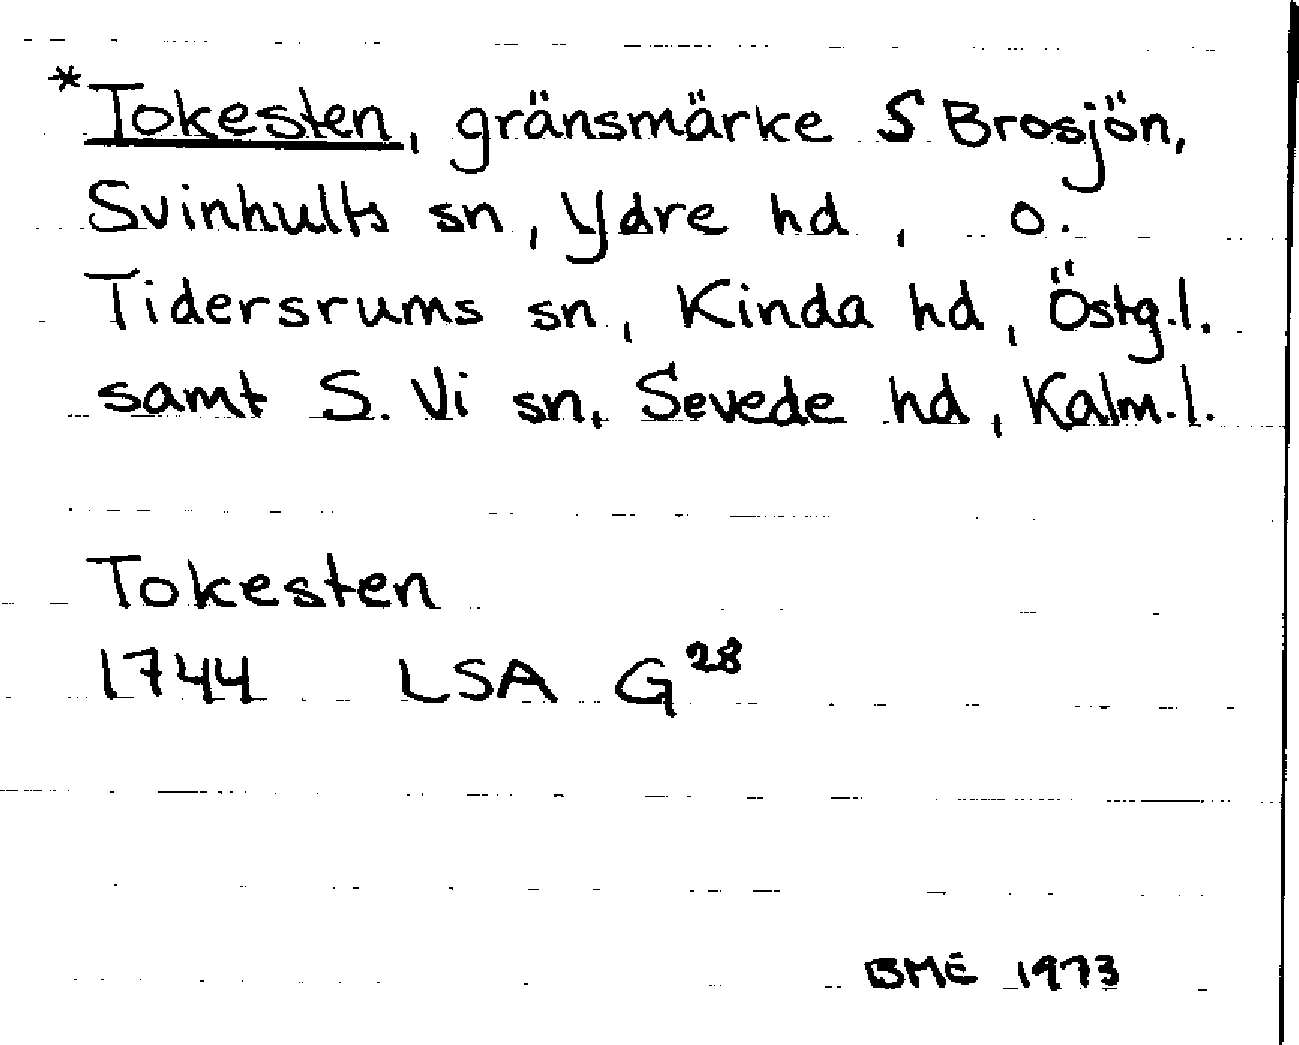 *Tokesten, gränsmärke S Brosjön,
Svinhults sn, Ydre hd, o.
Tidersrums sn, Kinda hd, Östg.l.
samt S. Vi sn, Sevede hd, Kalm.l.
Tokesten
1744 LSA G28
BME 1973